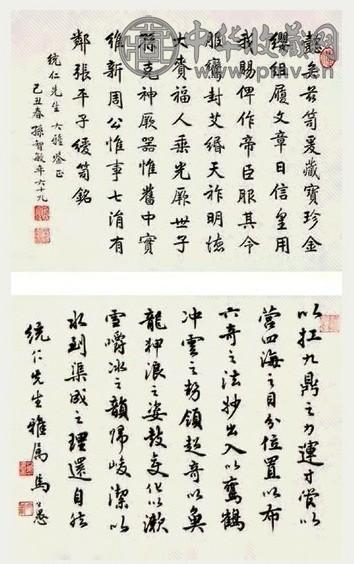 中华收藏网
懿矣茲笥爰藏寶珍金
纓組履文章日信皇用
我賜俾作帝臣服其令
服鸞封艾緡天祚明德
大賚福人乘光厥世子
孫克神厥器惟舊中實
維新周公惟事七涓有
鄰張平子綬笥銘
統仁先生大雅鑒正
己丑春孫智敏年六十九
以扛九鼎之力運寸管以
營四海之目分位置以布
六奇之法妙出入以鸞鶴
冲雲之勢領超奇以魚
龍狎浪之姿鼓變化以漱
雪嚼冰之韻歸峻潔以
水到渠成之理還自然
統仁先生雅屬 馬公愚